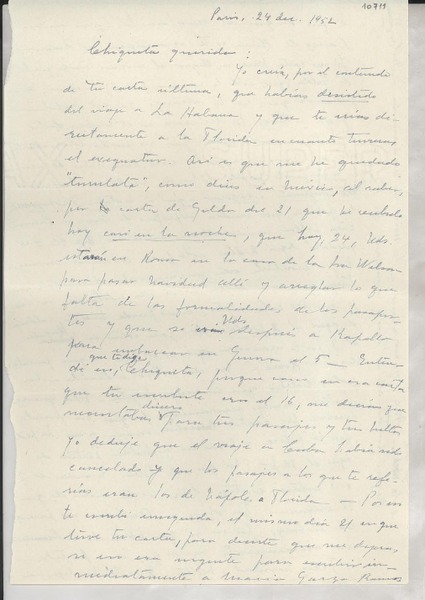 10711
Paris, 24 dec. 1952
Chiquita querida:
Yo creía, por el contenido
de tu carta última, que habías desistido
del viaje a La Habana y que te irías di-
rectamente a la Florida en cuanto tuvieras
el exequatur. Así es que me he quedado
"tumulata", como dicen en México, al saber,
por carta de Gilda del 21 que he recibido
hoy casi en la noche, que hoy, 24, Uds.
estarán en Roma en la casa de la Sra
para pasar Navidad allí y arreglar lo que
falta de las formalidades de los pasapor-
tes y que se irán Uds. después a Rapallo
para embarcar en Génova el 5 — Enten-
dí mi Chiquita, porque como en esa carta
que tú me escribiste era el 16, me decías que
necesitabas dinero para tres pasajes y tan
Yo deduje que el viaje a Cuba había sido
cancelado y que los pasajes a los que te refe-
rías eran los de Nápoles a Florida — Por eso
te escribí enseguida, el mismo día 21 en que
tuve tu carta, para decirte que me dijeras
si no era urgente para escribir in-
mediatamente a María Garza Ramos